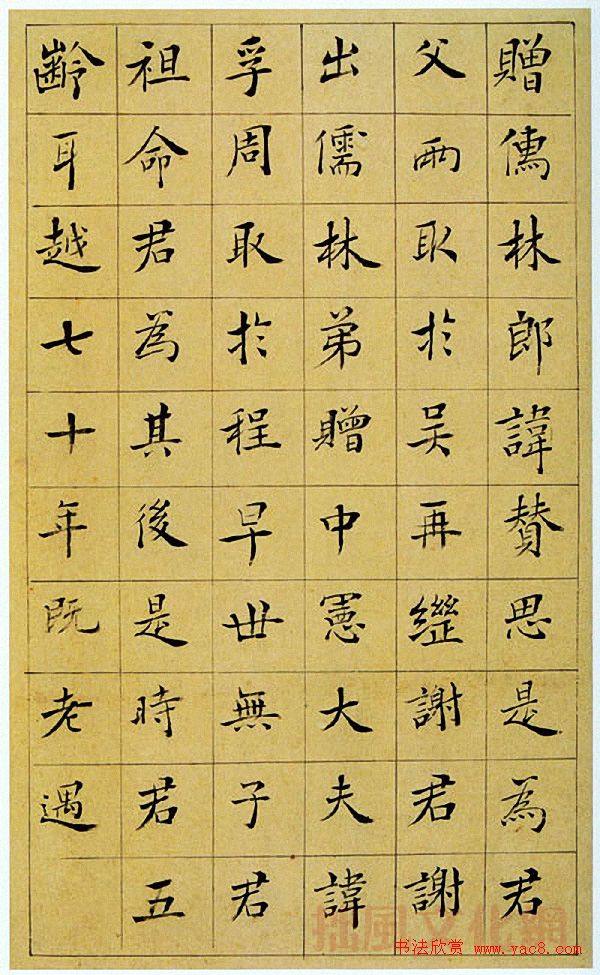 贈儒林郎諱贊思是為君
父兩取於吳再繼謝君謝
出儒林弟贈中憲大夫諱
孚周取於程早世無子君
祖命君為其後是時君五
齡耳越七十年既老遇
书法欣赏 www.yac8.com